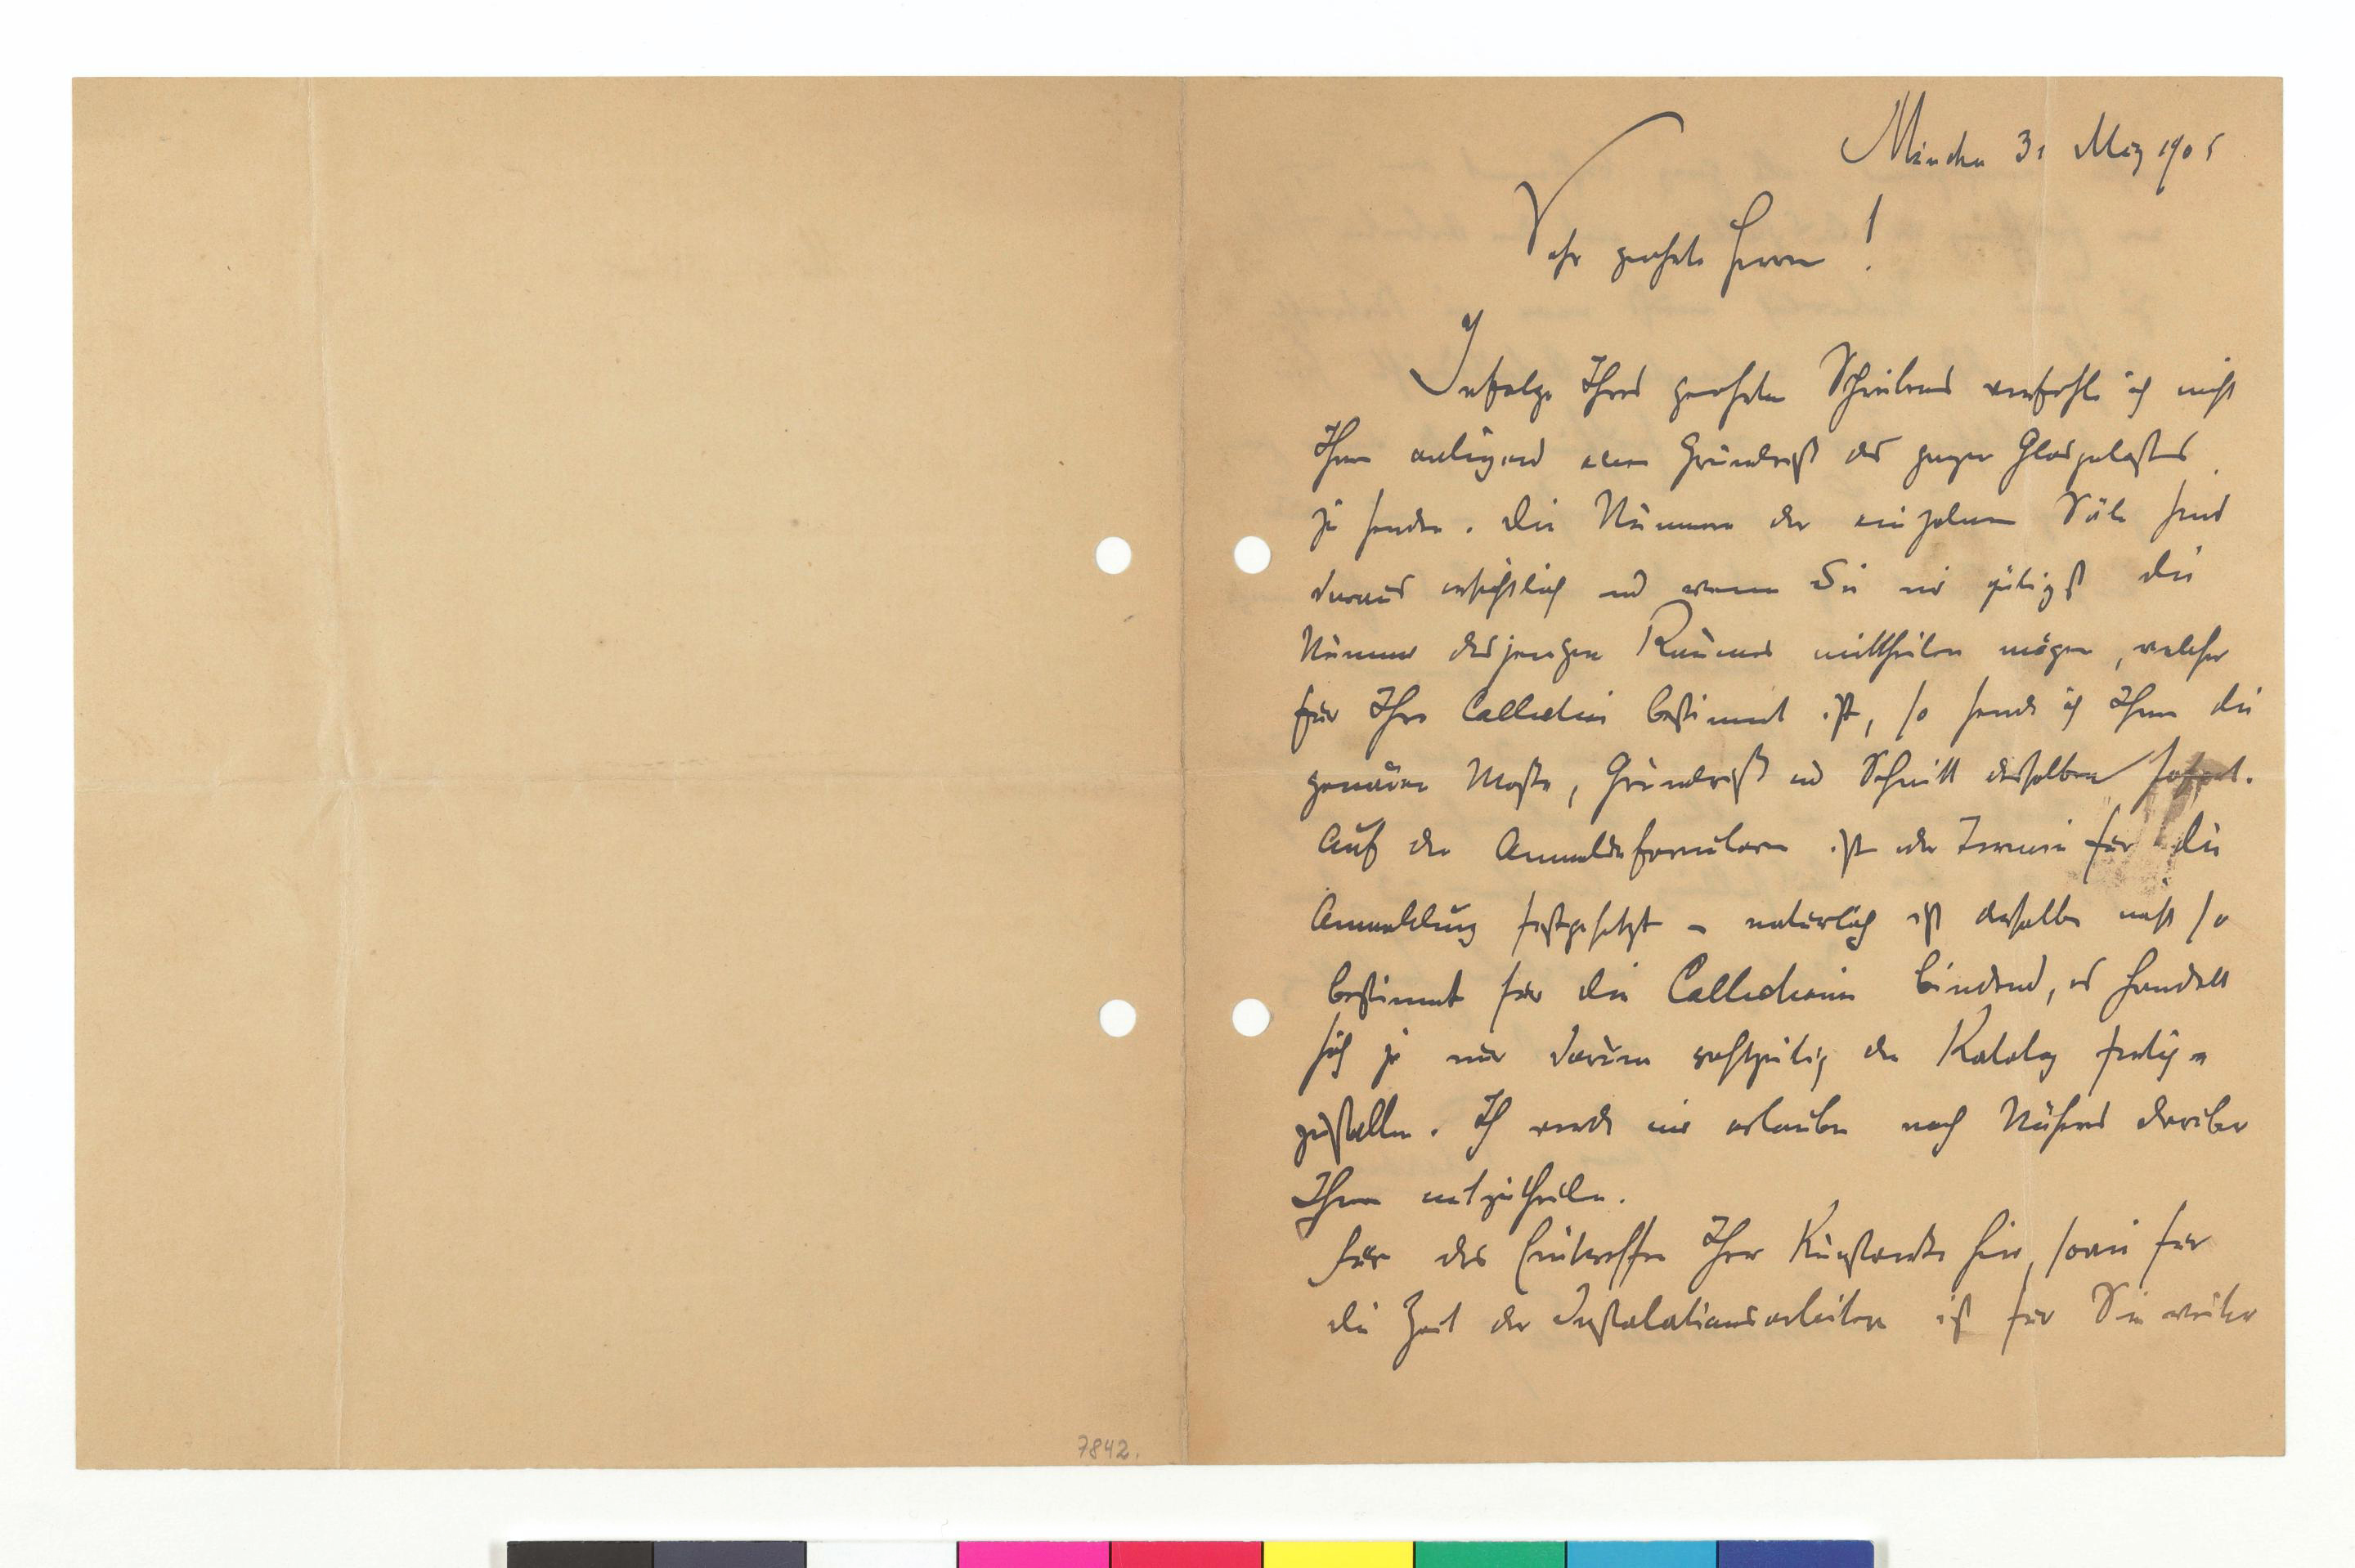 München 31 März 1905
Sehr geehrte Herren!
Infolge Ihres geehrten Schreibens verfehle ich nicht
Ihnen anliegend einen Grundriß des ganzen Glaspalastes
zu senden. Die Nummern der einzelnen Säle sind
daraus ersichtlich und wenn Sie mir gütigst die
Nummer desjenigen Raumes mittheilen mögen, welcher
für Ihre Collection bestimmt ist, so sende ich Ihnen die
genauen Maße, Grundriß und Schnitt desselben sofort.
Auf den Anmeldeformularen ist der Termin für die
Anmeldung festgesetzt – natürlich ist derselbe nicht so
bestimmt für die Collectionen bindend, es handelt
sich ja nur darum rechtzeitig den Katalog fertig-
zustellen. Ich werde mir erlauben noch Näheres darüber
Ihnen mitzutheilen.
Für das Eintreffen Ihrer Kunstwerke hier, sowie für
die Zeit der Installationsarbeiten ist für Sie weiter
7842.